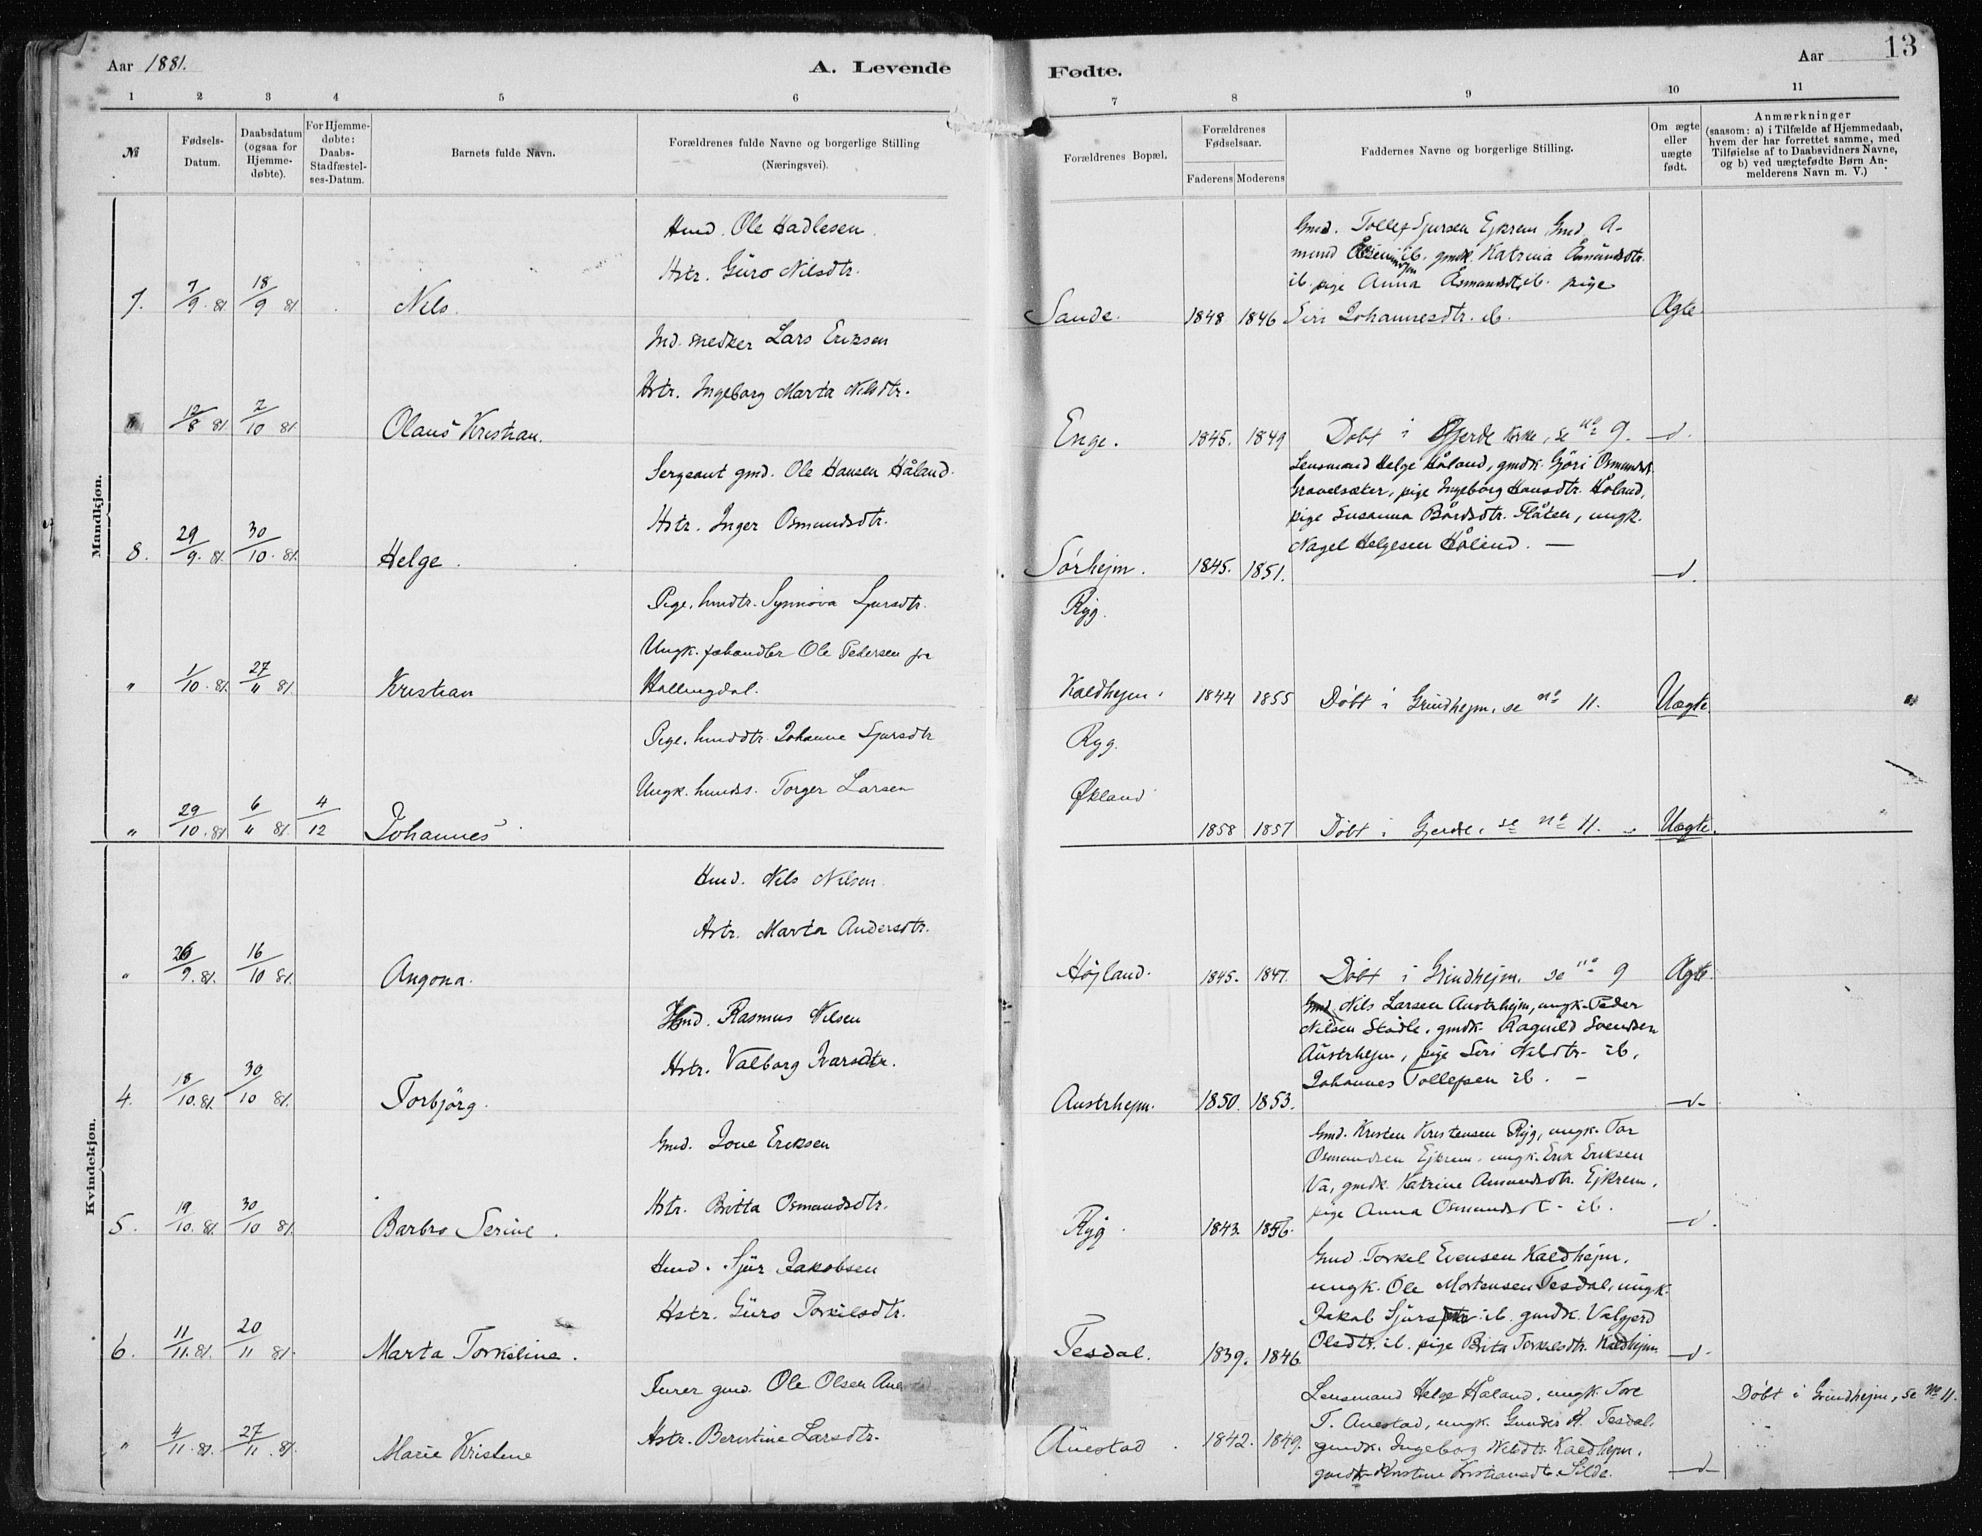 Aar 1881.
A. Levende Fødte.
Aar 13
1 2 3 4 5 6 7 8 9 10 11
№
Fødsels-Datum.
Daabsdatum (ogsaa for Hjemme-døbte).
For Hjemme-døbte: Daabs-Stadfæstel-ses-Datum.
Barnets fulde Navn.
Forældrenes fulde Navne og borgerlige Stilling (Næringsvei).
Forældrenes Bopæl.
Forældrenes Fødselsaar.
Faderens Moderens
Faddernes Navne og borgerlige Stilling.
Om ægte eller uægte født.
Anmærkninger
(saasom: a) i Tilfælde af Hjemmedaab,
hvem der har forrettet samme, med
Tilføielse af to Daabsvidners Navne,
og b) ved uægtefødte Børn An-
melderens Navn m. V.)
Mandkjøn.
Hmd. Ole Hadlesen
Hstr. Guro Nilsdtr.
7. 7/9 . 81 18/9 81 Nils.
Sande. 1848 1846
Gmd. Tollef Sjursen Ejkrem Gmd. A-
mund ib. gmdk. Katrina Åsmundsdtr.
ib. pige Anna Åsmundsdt. ib. pige
Siri Johannesdtr. ib.
Ægte
Ind. snedker Lars Eriksen
Hstr. Ingeborg Marta Nilsdtr.
" 12/8 81 2/10 81 Olaus Kristian.
Enge. 1845. 1849 Døbt i Gjerde kirke, se no 9. -d.
Sergeant gmd. Ole Hansen Håland.
Hstr. Inger Osmundsdtr.
8. 29/9. 81. 30/10. 81. Helge.
Sørhejm. 1845. 1851.
Lensmand Helge Håland, gmdk. Gjöri Osmundsdt.
Gravelsæter, pige Ingeborg Hansdtr. Håland,
pige Susanna Bårdsdtr. Flåten, ungk.
Nagel Helgesen Håland. —
-d.
Pige. hmdtr. Synnøva Sjursdtr.
Ungk. fæhandler Ole Pedersen fra
Hallingdal.
" 1/10. 81. 27/11 81. Kristian
Ryg.
Kaldhejm. 1844 1855 Døbt i Grindhejm, se no 11. Uægte.
Pige. hmddtr. Johanne Sjursdtr
Ungk. hmdss. Torger Larsen
" 29/10. 81 6/11 81. 4/12 Johannes
Ryg.
Økland
1858 1857 Døbt i Gjerde, se no 11. Uægte.
Kvindekjøn.
Hmd. Nils Nilsen
Hstr. Marta Andersdtr.
" 26/9. 81. 16/10 81. Angona.
Højland. 1845. 1847. Døbt i Grindhejm. se no 9 Ægte.
Hmd. Rasmus Nilsen
Hstr. Valborg Ivarsdtr.
4. 18/10. 81. 30/10 81. Torbjörg.
Austrhejm. 1850. 1853.
Gmd. Nils Larsen Austrhejm, ungk. Peder
Nilsen Stødle, gmdk. Ragnild Svendsen
Austrhejm, pige Siri Nilsdtr. ib.
Johannes Tollefsen ib. -
-d-
Gmd. Jone Eriksen
Hstr. Britta Osmundsdtr.
5. 19/10. 81. 30/10 81. Barbro Serine.
Ryg. 1843. 1856.
Gmd. Kristen Kristensen Ryg, ungk. Tor
Osmundsen Ejkrem, ungk. Erik Eriksen
Va, gmdk. Katrine Amundsdtr. Ejkrem,
pige Anna Osmundsdt. ib.
-d.
Hmd. Sjur Jakobsen
Hstr. Guro Torkilsdtr.
6. 11/11. 81. 20/11 81. Marta Torkeline.
Tesdal. 1839. 1846.
Gmd. Torkel Evensen Kaldhejm.
ungk. Ole Mortensen Tesdal, ungk.
Jakob Sjurs ib. gmdk. Valgjerd
Olsdtr. ib. pige Brita Torkilsdtr. Kaldhejm
-d-
Furer gmd. Ole Olsen Auestad
Hstr. Berentine Larsdtr.
" 4/11. 81. 27/11. 81. Marie Kristene
Auestad. 1842. 1849.
Lensmand Helge Håland, ungk. Tore
T. Auestad, ungk. Gunder H. Tesdal.
gmdk. Ingeborg Nilsdtr. Kaldhejm.
gmdk. Kristine Kristiansdt. Silde.
-d-
Døbt i Grindhejm, se No 11.